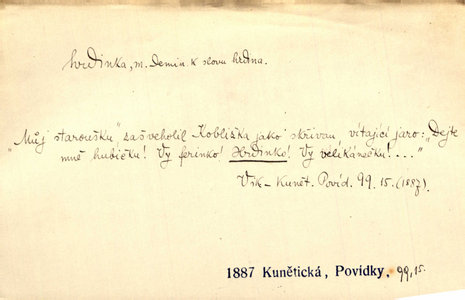 hrdinka, m. Demin. k slovu hrdina.
„Můj staroušku" zašveholil Kobližka jako skřivan, vítající jaro: „Dejte
mně hubičku! Vy ferinko! Hrdinko! Vy velikánečku!...."
Vrk – Kunět. Povíd. 99. 15. (1887).
1887 Kunětická, Povídky. 99, 15.